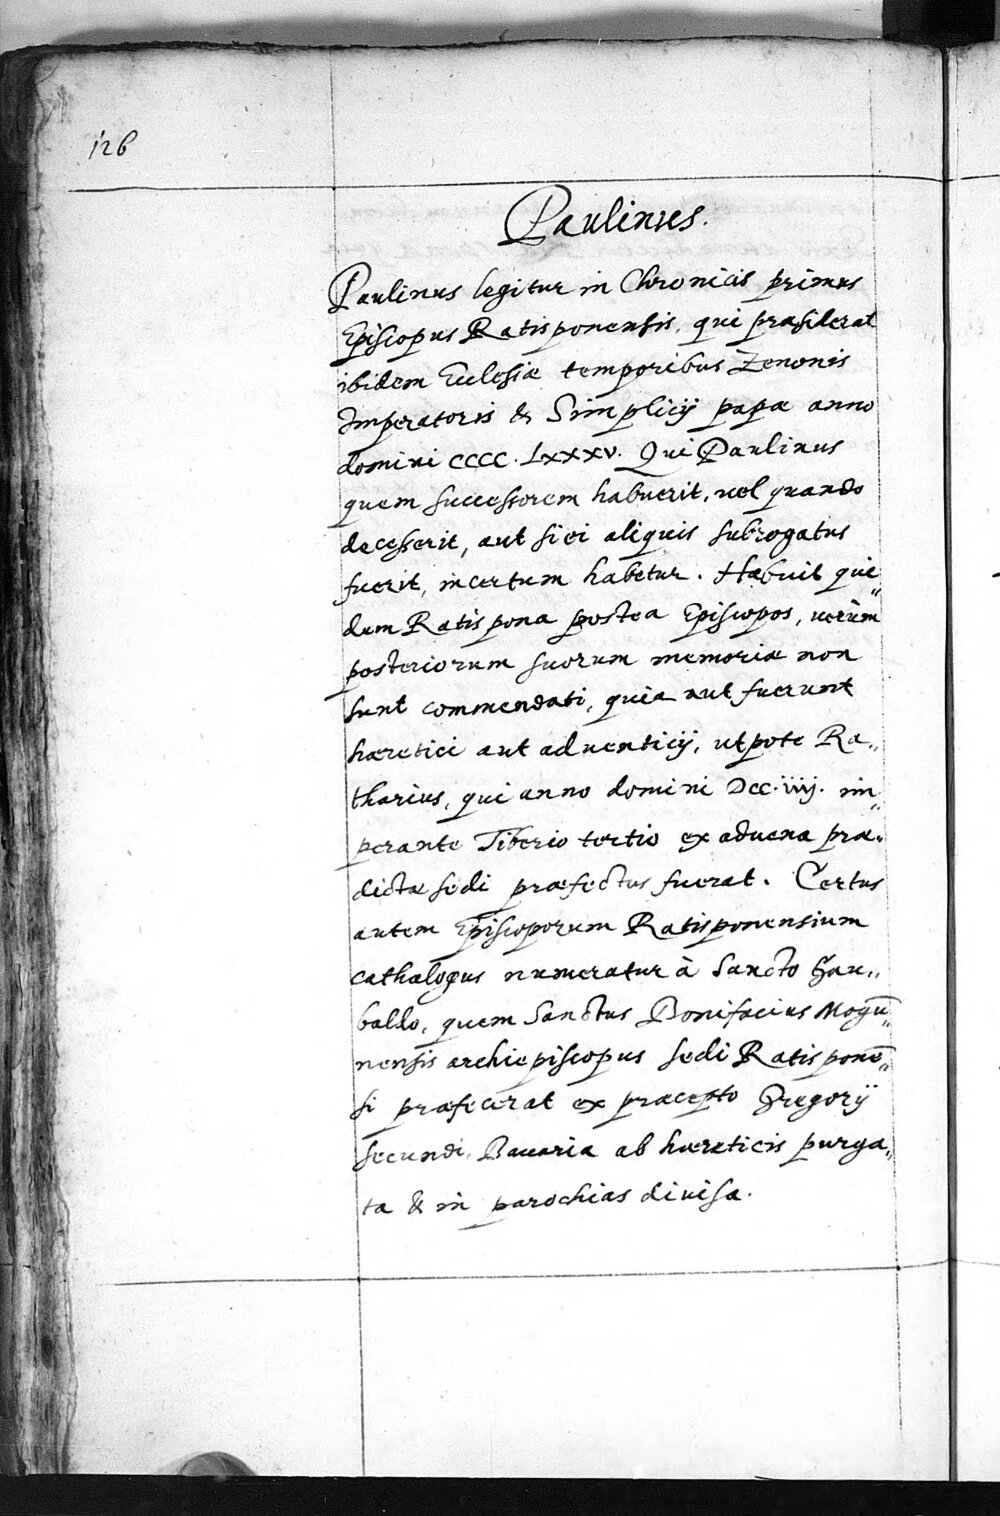 126
Paulinus.
Paulinus legitur in Chronicis primus
Episcopus Ratisponensis, qui præsiderat
ibidem Ecclesiæ temporibus Zenonis
Imperatoris & Simplicij papæ anno
domini CCCC. LXXXV. Qui Paulinus
quem successorem habuerit, uel quando
decesserit, aut si ei aliquis subrogatus
fuerit, incertum habetur. Habuit qui„
dem Ratispona postea Episcopos, uerùm
posteriorum suorum memoriæ non
sunt commendati, quia aut fuerunt
hæretici aut aduenticij, utpote Ra„
tharius, qui anno domini DCC. iiij. im„
perante Tiberio tertio ex aduena præ„
dictæ sedi præfectus fuerat. Certus
autem Episcoporum Ratisponensium
cathalogus numeratur à Sancto Gau„
baldo, quem Sanctus Bonifacius Mogū„
nensis archiepiscopus sedi Ratisponē„
si præfecerat ex præcepto Gregorij
secundi, Bauaria ab hæreticis purga„
ta & in parochias diuisa.